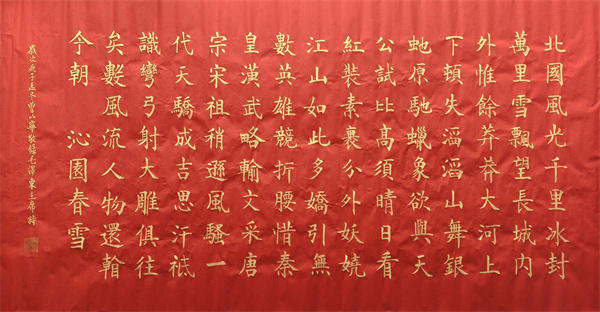 北國風光千里冰封
萬里雪飄望長城內
外惟餘莽莽大河上
下頓失滔滔山舞銀
虵原馳蠟象欲與天
公試比高須晴日看
紅裝素裹分外妖嬈
江山如此多嬌引無
數英雄競折腰惜秦
皇漢武略輸文采唐
宗宋祖稍遜風騷一
代天驕成吉思汗祗
識彎弓射大雕俱往
矣數風流人物還看
今朝 沁園春雪
歲次庚子孟冬曾寧敬錄毛澤東主席詞